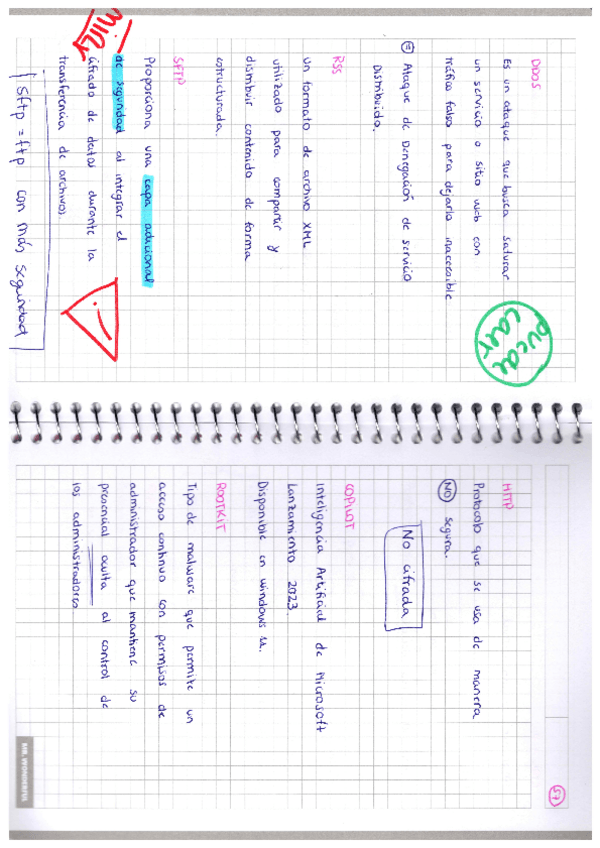 DDOS
Es un ataque que busca saturar
un servicio o sitio web con
tráfico falso para dejarlo inaccesible
Ataque de Denegación de servicio
Distribuido.
RSS
un formato de archivo XML
utilizado para compartir y
distribuir contenido de forma
estructurada.
SFTP
Proporciona una capa adicional
de seguridad al integrar el
cifrado de datos durante la
transferencia de archivos.
Sftp = ftp con más seguridad
HTTP
Protocolo que se usa de manera
NO segura.
No cifrada
COPILOT
Inteligencia Artificial de Microsoft
Lanzamiento 2023.
Disponible en windows 11.
ROOTKIT
Tipo de malware que permite un
acceso continuo con permisos de
administrador que mantiene su
presencial oculta al control de
los administradores
57
MR. WONDERFUL